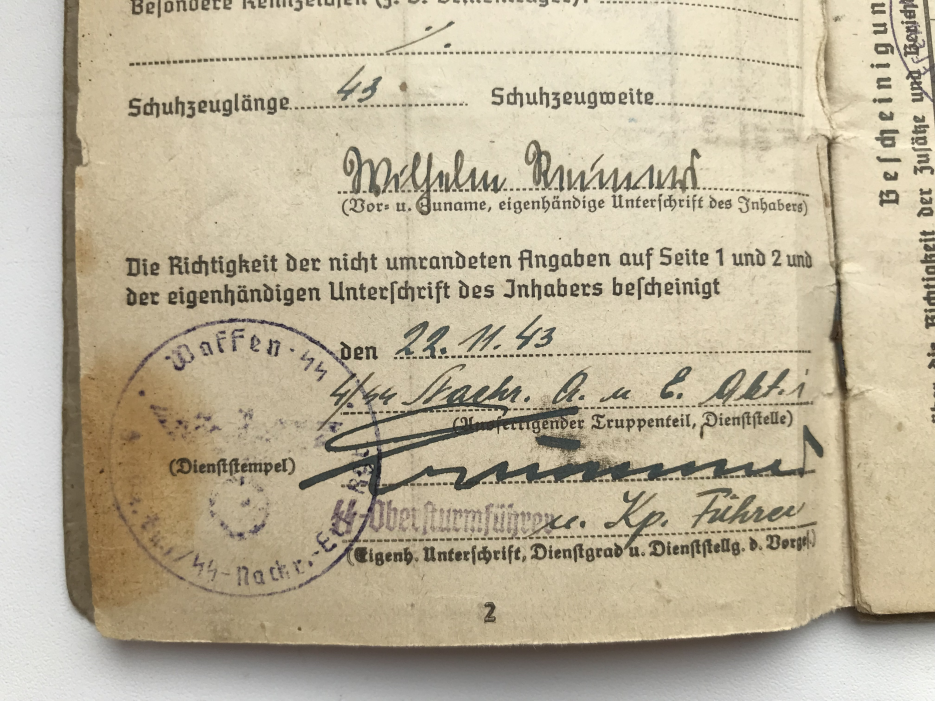 Besondere Kennzeichen (z. B. Brillenträger):
./.
Schuhzeuglänge 43 Schuhzeugweite
Wilhelm Reimers
(Vor- u. Zuname, eigenhändige Unterschrift des Inhabers)
Die Richtigkeit der nicht umrandeten Angaben auf Seite 1 und 2 und
der eigenhändigen Unterschrift des Inhabers bescheinigt
Waffen-SS
den 22.11.43
4/SS Nachr. A. u E. Abt. 1
(Ausfertigender Truppenteil, Dienststelle)
(Dienststempel)
SS-Obersturmführer u. Kp. Führer
(Eigenh. Unterschrift, Dienstgrad u. Dienststellg. d. Vorges.)
SS-Nachr.-
2
Bescheinigung
die Richtigkeit der Zusätze und Bericht